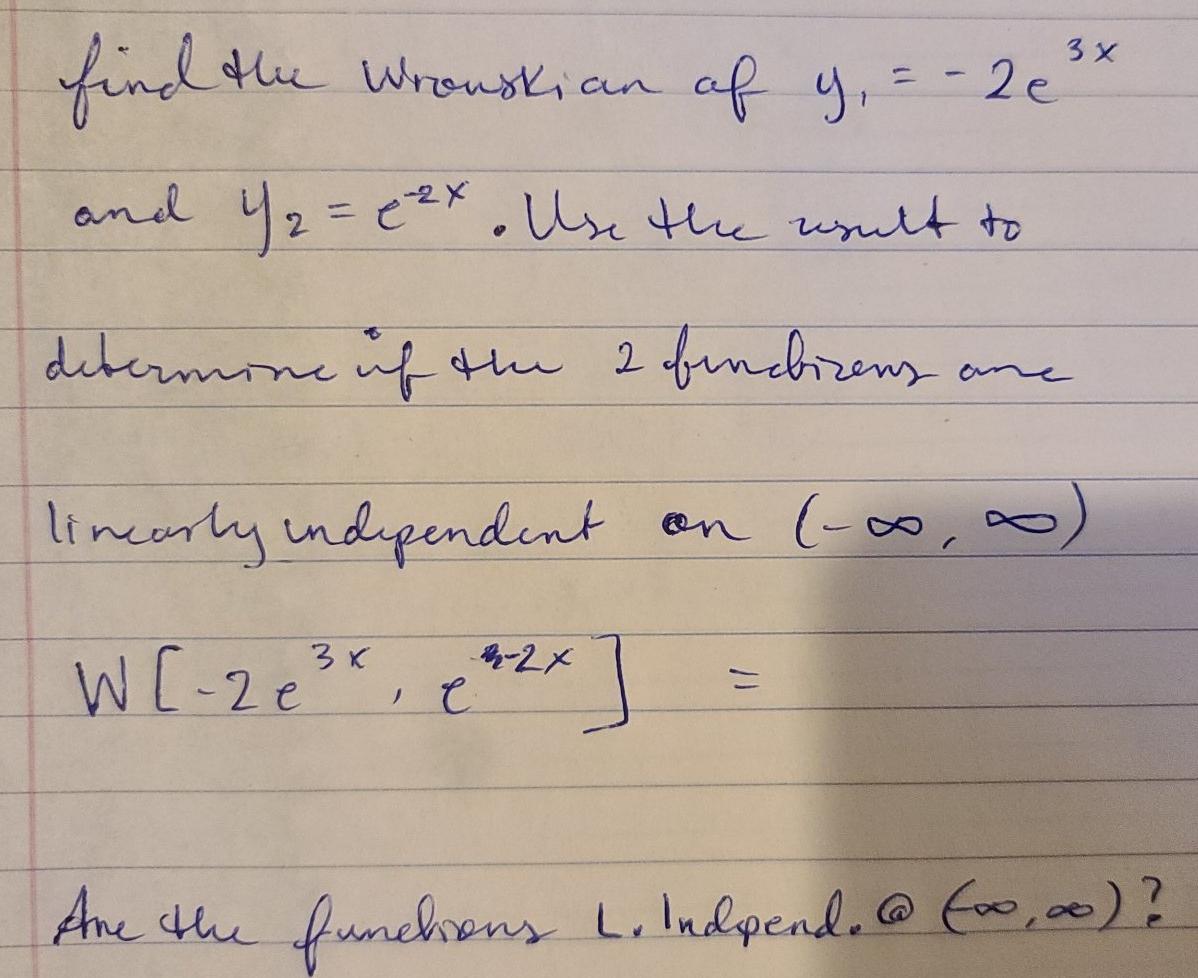 find the Wronskian of y₁ = -2e³ˣ
and y₂ = e⁻²ˣ. Use the result to
determine if the 2 functions are
linearly independent on (-∞, ∞)
W[-2e³ˣ, e⁻²ˣ] =
Are the functions L. Independ. @ (-∞, ∞)?